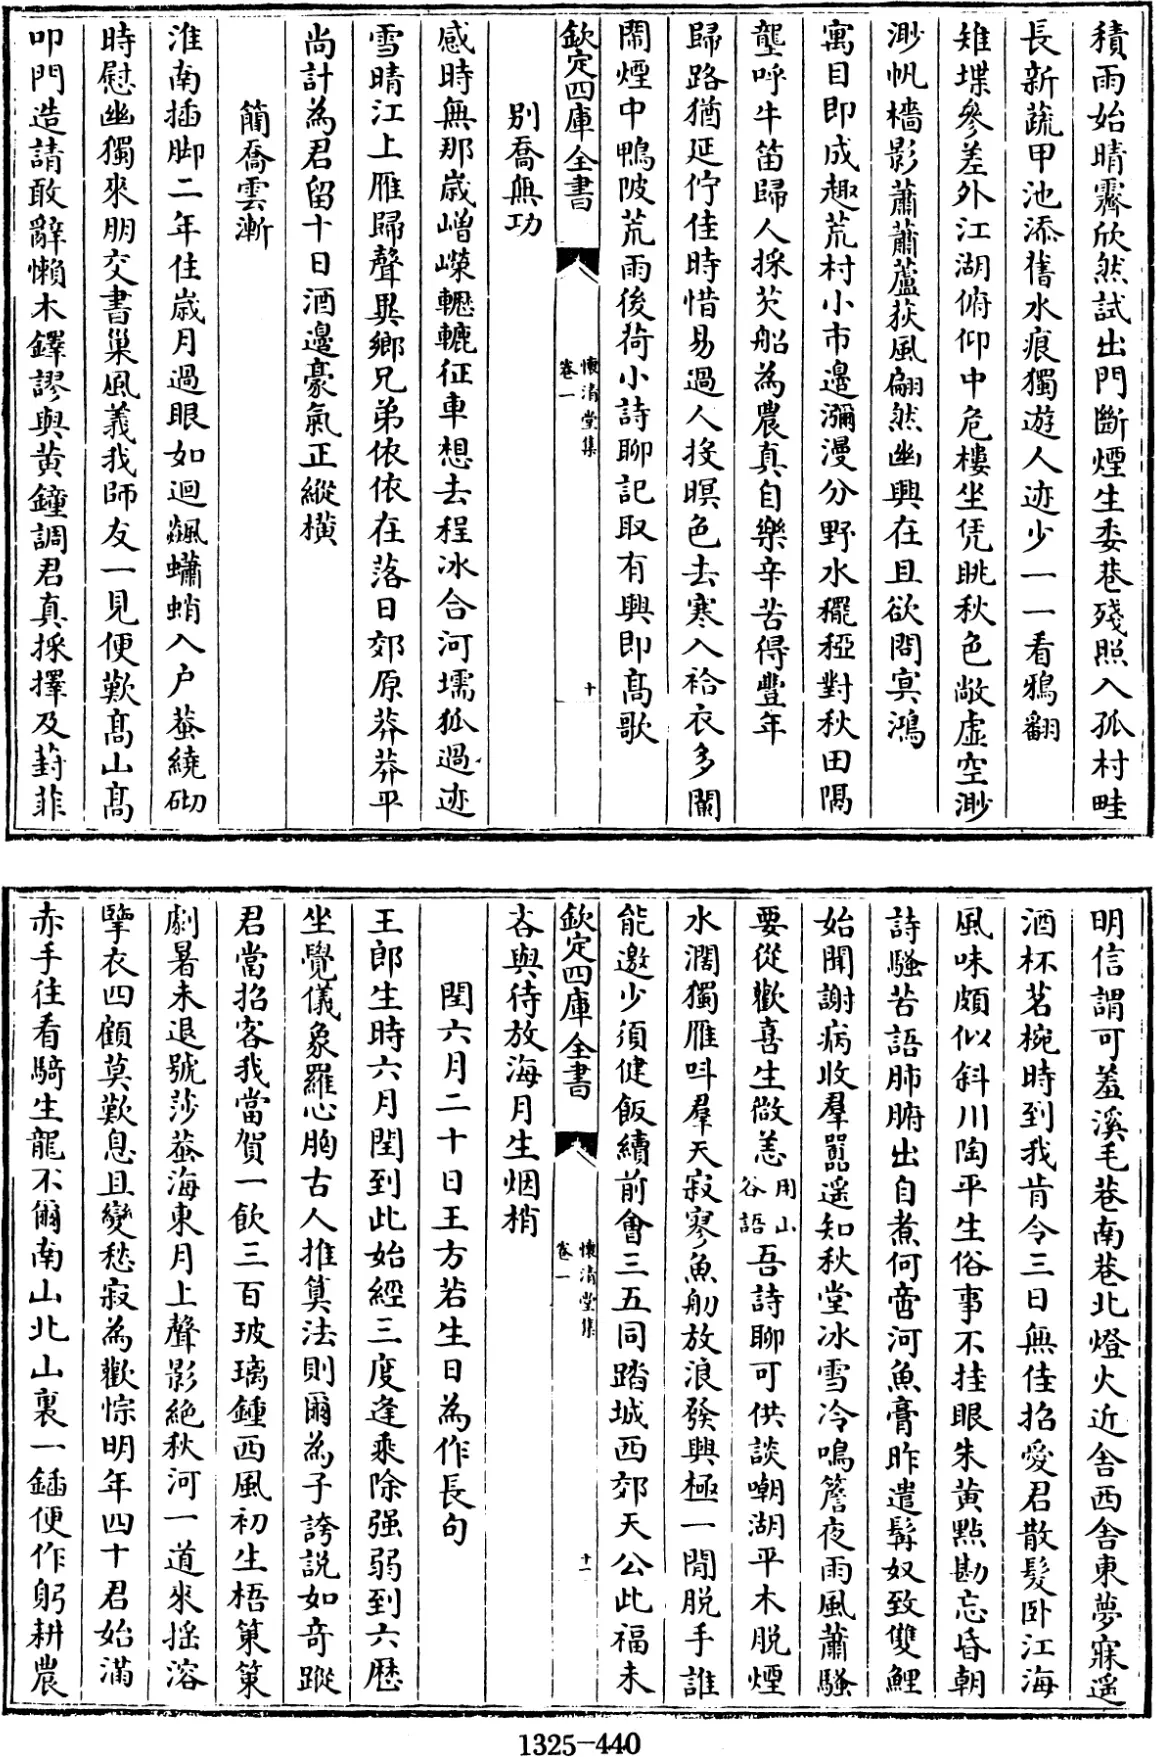 積雨始晴霽欣然試出門斷煙生委巷殘照入孤村畦
長新蔬甲池添舊水痕獨遊人迹少一一看鴉翻
雉堞參差外江湖俯仰中危樓坐凭眺秋色敞虛空渺
渺帆檣影蕭蕭蘆荻風翩然幽興在且欲問冥鴻
寓目即成趣荒村小市邊瀰漫分野水䆉稏對秋田隅
壟呼牛笛歸人採芡船為農真自樂辛苦得豐年
歸路猶延佇佳時惜易過人投暝色去寒入袷衣多闌
鬧煙中鴨陂荒雨後荷小詩聊記取有興即高歌
欽定四庫全書
懷清堂集
卷一
十
別喬無功
感時無那歲崢嶸轣轆征車想去程冰合河壖狐過迹
雪晴江上雁歸聲異鄉兄弟依依在落日郊原莽莽平
尚計為君留十日酒邊豪氣正縱橫
簡喬雲漸
淮南插脚二年住歲月過眼如迴飈蠨蛸入户蔓繞砌
時慰幽獨來朋交書巢風義我師友一見便歎高山高
叩門造請敢辭懶木鐸謬與黃鐘調君真採擇及葑菲
明信謂可羞溪毛巷南巷北燈火近舍西舍東夢寐遥
酒杯茗椀時到我肯令三日無佳招愛君散髪卧江海
風味頗似斜川陶平生俗事不挂眼朱黃點勘忘昏朝
詩騷苦語肺腑出自煮何啻河魚膏昨遣髯奴致雙鯉
始聞謝病收羣囂遥知秋堂冰雪冷鳴簷夜雨風蕭騷
要從歡喜生微恙用山谷語吾詩聊可供談嘲湖平木脱煙
水濶獨雁叫羣天寂寥魚舠放浪發興極一閒脱手誰
能邀少須健飯續前會三五同踏城西郊天公此福未
欽定四庫全書
懷清堂集
卷一
十一
吝與待放海月生烟梢
閏六月二十日王方若生日為作長句
王郎生時六月閏到此始經三度逢乘除强弱到六厯
坐覺儀象羅心胸古人推算法則爾為子誇説如奇蹤
君當招客我當賀一飲三百玻瓈鍾西風初生梧策策
劇暑未退號莎蛬海東月上聲影絶秋河一道來搖溶
攣衣四顧莫歎息且變愁寂為歡悰明年四十君始滿
赤手往看騎生龍不爾南山北山裏一鍤便作躬耕農
1325-440